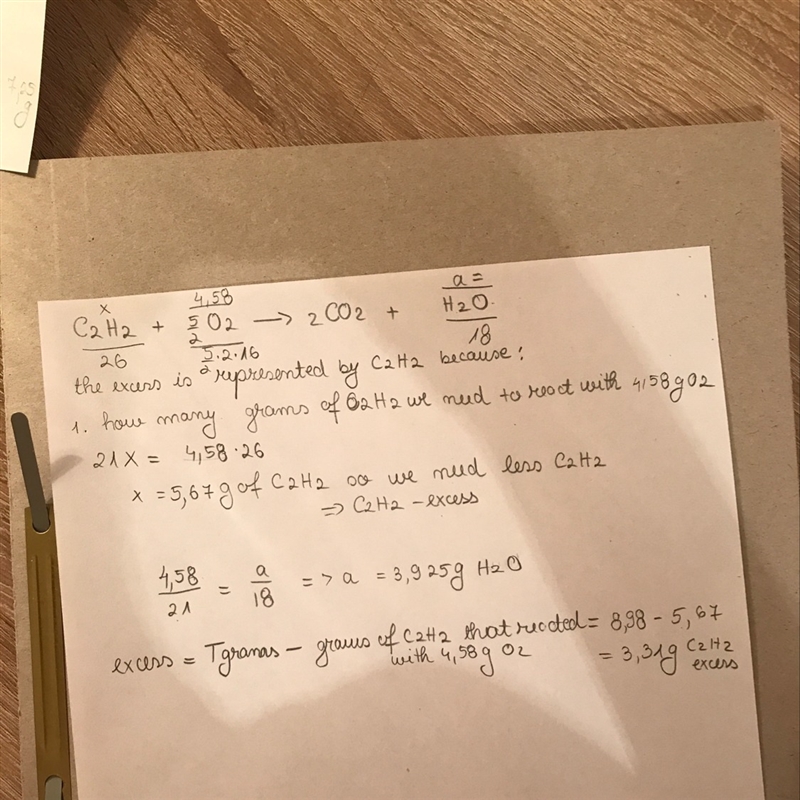 7,29
g
x 4,58 a =
C2H2 + 5/2 O2 → 2CO2 + H2O
26 5/2·2·16 18
the excess is represented by C2H2 because:
1. how many grams of C2H2 we need to react with 4,58g O2
21X = 4,58·26
x = 5,67g of C2H2 so we need less C2H2
=> C2H2 - excess
4,58/21 = a/18 => a = 3,925g H2O
excess = Tgramas - grams of C2H2 that reacted = 8,98 - 5,67
with 4,58g O2 = 3,31g C2H2
excess